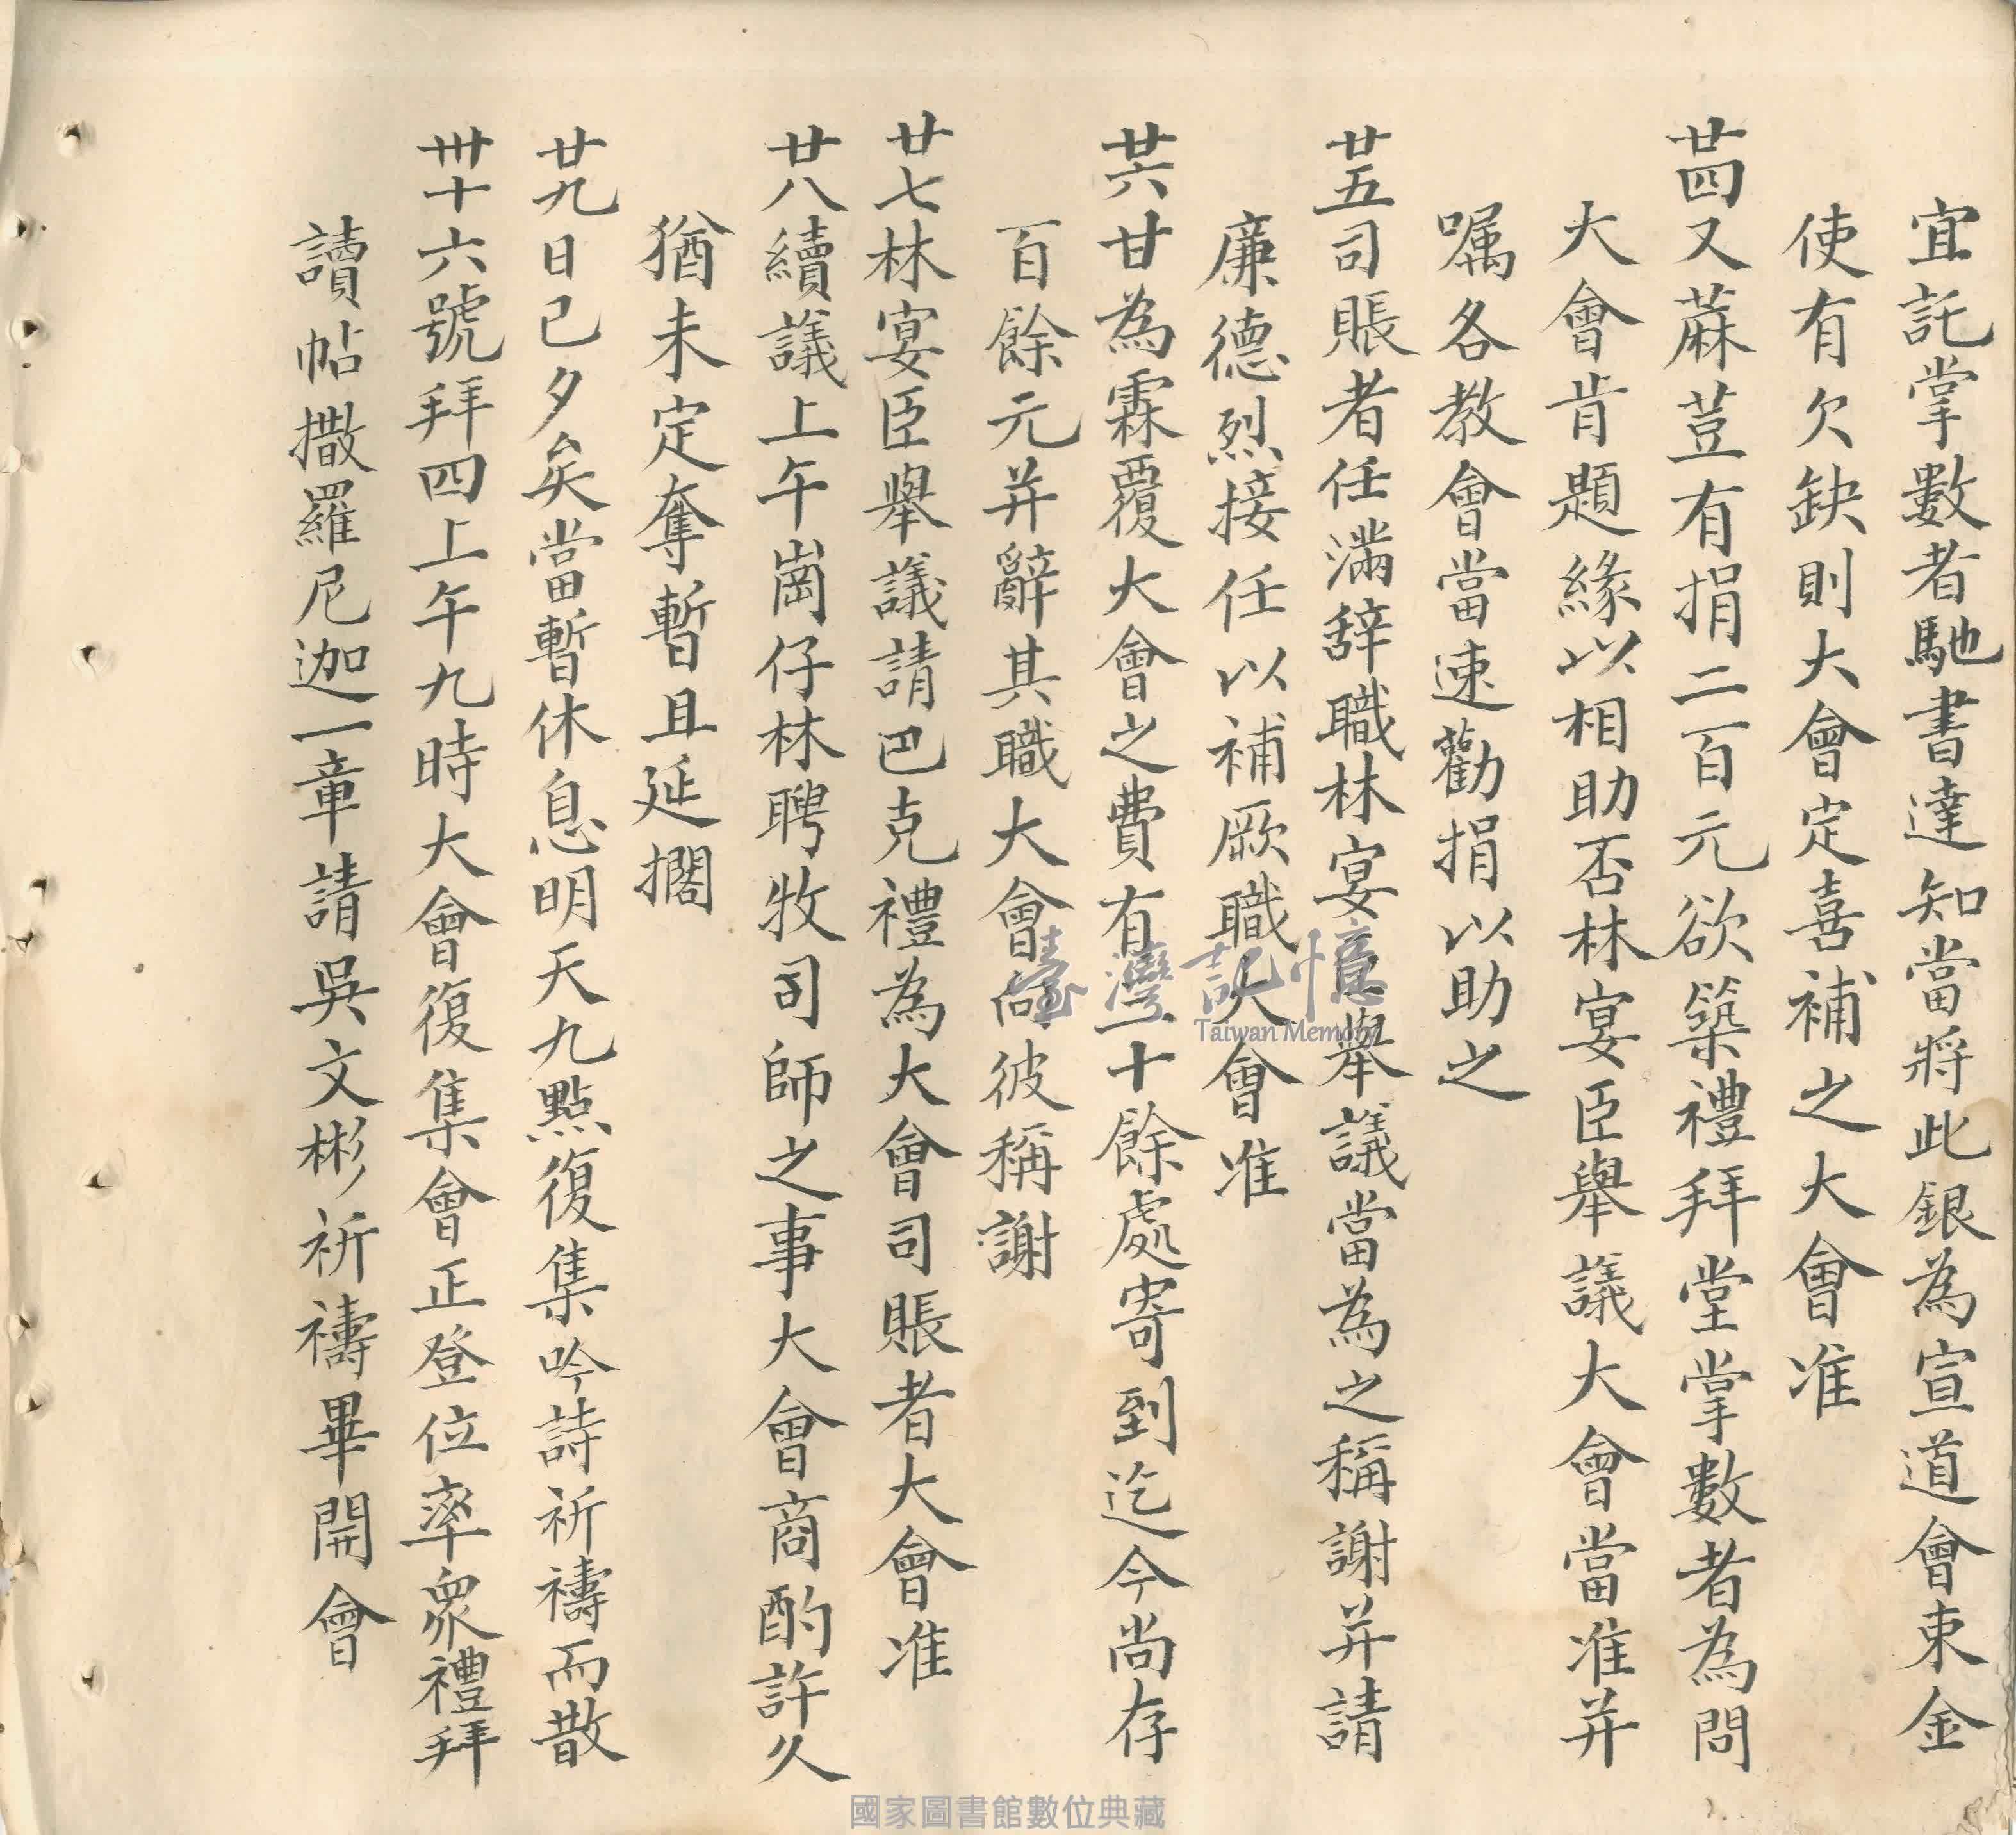 宜託掌數者馳書達知當將此銀為宣道會束金
使有欠缺則大會定喜補之大會准
廿四又蔴荳有捐二百元欲築禮拜堂掌數者為問
大會肯題緣以相助否林宴臣舉議大會當准并
嘱各教會當速勸捐以助之
廿五司賬者任滿辞職林宴臣舉議當為之稱謝并請
廉德烈接任以補厥職大會准
廿六甘為霖覆大會之費有二十餘處寄到迄今尚存
百餘元并辭其職大會向彼稱謝
廿七林宴臣舉議請巴克禮為大會司賬者大會准
廿八續議上午崗仔林聘牧司師之事大會商酌許久
猶未定奪暫且延擱
廿九日已夕矣當暫休息明天九點復集吟詩祈禱而散
卅十六號拜四上午九時大會復集會正登位率眾禮拜
讀帖撒羅尼迦一章請吳文彬祈禱畢開會
臺灣記憶
Taiwan Memory
國家圖書館數位典藏